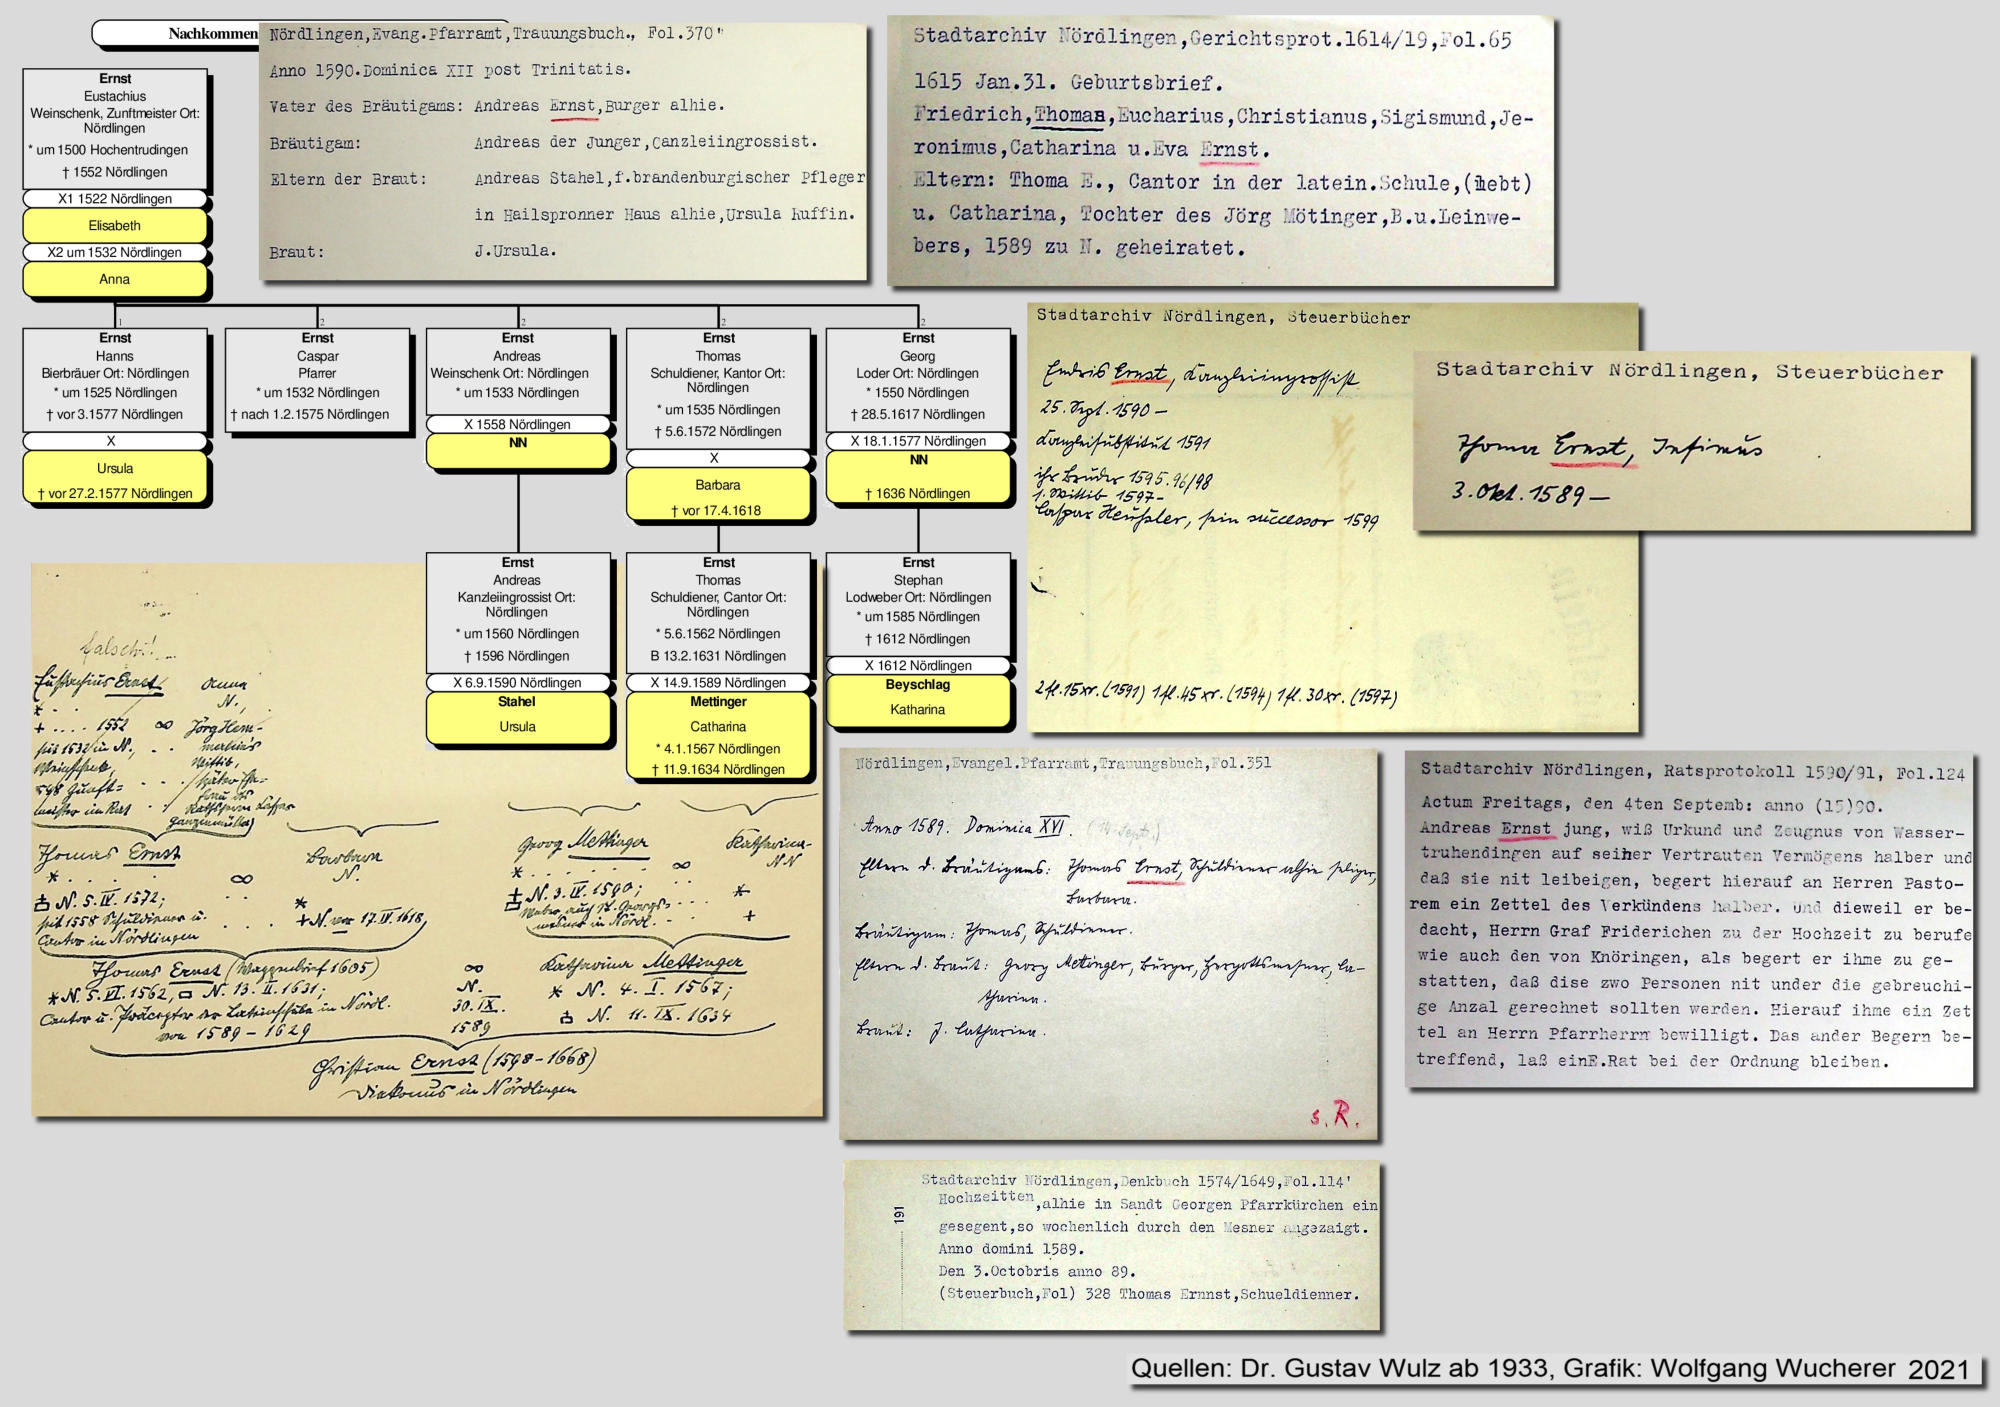 Nachkommen
Ernst
Eustachius
Weinschenk, Zunftmeister Ort:
Nördlingen
* um 1500 Hochentrudingen
† 1552 Nördlingen
X1 1522 Nördlingen
Elisabeth
X2 um 1532 Nördlingen
Anna
Nördlingen,Evang.Pfarramt,Trauungsbuch., Fol.370"
Anno 1590.Dominica XII post Trinitatis.
Vater des Bräutigams: Andreas Ernst,Burger alhie.
Bräutigam: Andreas der Junger,Canzleiingrossist.
Eltern der Braut: Andreas Stahel,f.brandenburgischer Pfleger
in Hailspronner Haus alhie,Ursula Ruffin.
Braut: J.Ursula.
Stadtarchiv Nördlingen,Gerichtsprot.1614/19,Fol.65
1615 Jan.31. Geburtsbrief.
Friedrich,Thomas,Eucharius,Christianus,Sigismund,Je-
ronimus,Catharina u.Eva Ernst.
Eltern: Thoma E., Cantor in der latein.Schule,(lebt)
u. Catharina, Tochter des Jörg Mötinger,B.u.Leinwe-
bers, 1589 zu N. geheiratet.
1
Ernst
Hanns
Bierbräuer Ort: Nördlingen
* um 1525 Nördlingen
† vor 3.1577 Nördlingen
X
Ursula
† vor 27.2.1577 Nördlingen
2
Ernst
Caspar
Pfarrer
* um 1532 Nördlingen
† nach 1.2.1575 Nördlingen
2
Ernst
Andreas
Weinschenk Ort: Nördlingen
* um 1533 Nördlingen
X 1558 Nördlingen
NN
2
Ernst
Thomas
Schuldiener, Kantor Ort:
Nördlingen
* um 1535 Nördlingen
† 5.6.1572 Nördlingen
X
Barbara
† vor 17.4.1618
2
Ernst
Georg
Loder Ort: Nördlingen
* 1550 Nördlingen
† 28.5.1617 Nördlingen
X 18.1.1577 Nördlingen
NN
† 1636 Nördlingen
Ernst
Andreas
Kanzleiingrossist Ort:
Nördlingen
* um 1560 Nördlingen
† 1596 Nördlingen
X 6.9.1590 Nördlingen
Stahel
Ursula
Ernst
Thomas
Schuldiener, Cantor Ort:
Nördlingen
* 5.6.1562 Nördlingen
B 13.2.1631 Nördlingen
X 14.9.1589 Nördlingen
Mettinger
Catharina
* 4.1.1567 Nördlingen
† 11.9.1634 Nördlingen
Ernst
Stephan
Lodweber Ort: Nördlingen
* um 1585 Nördlingen
† 1612 Nördlingen
X 1612 Nördlingen
Beyschlag
Katharina
Stadtarchiv Nördlingen, Steuerbücher
Endris Ernst, Kanzleiingrossist
25. Sept. 1590 –
Kanzleisubstitut 1591
ihr Bruder 1595.96/98
1. Wittib 1597-
Caspar Heußler, sein successor 1599
2 fl. 15 xr. (1591) 1 fl. 45 xr. (1594) 1 fl. 30 xr. (1597)
Stadtarchiv Nördlingen, Steuerbücher
Thoma Ernst, Infimus
3. Okt. 1589 –
falsch!
Eustachius Ernst Anna
* . . . N.,
+ .... 1552 ∞ Jörg Hem-
seit 1532 in N., . . merlin's
Weinschenk, Wittib,
Zunft- . . . später Ehe-
frau des
meister im Rat
Thomas Ernst Barbara
* . . . . ∞ N.
N. 5. IV. 1572; *
seit 1558 Schuldiener u. . . . + N. vor 17. IV. 1618,
Cantor in Nördlingen
Georg Mettinger Katharina
* . . . . ∞ N.N
N. 3. IV. 1590; . . *
Weber, auch St. Georgs- . . . +
mesner in Nördl.
Thomas Ernst (Wappenbrief 1605) ∞ Katharina Mettinger
* N. 5. VI. 1562, N. 13. II. 1631; N. * N. 4. I. 1567;
Cantor u. Präceptor der Lateinschule in Nördl. 30. IX. N. 11. IX. 1634
von 1589 – 1629 1589
Christian Ernst (1598-1668)
Diakonus in Nördlingen
Nördlingen,Evangel.Pfarramt,Trauungsbuch,Fol.351
Anno 1589. Dominica XVI. (14. Sept.)
Eltern d. Bräutigams: Thomas Ernst, Schuldiener alhie seliger,
Barbara.
Bräutigam: Thomas, Schuldiener.
Eltern d. Braut: Georg Mettinger, Bürger, Hergottsmesner, Ca-
tharina.
Braut: J. Catharina.
s. R.
Stadtarchiv Nördlingen, Ratsprotokoll 1590/91, Fol.124
Actum Freitags, den 4ten Septemb: anno (15)90.
Andreas Ernst jung, wiß Urkund und Zeugnus von Wasser-
truhendingen auf seiner Vertrauten Vermögens halber und
daß sie nit leibeigen, begert hierauf an Herren Pasto-
rem ein Zettel des Verkündens halber. Und dieweil er be-
dacht, Herrn Graf Friderichen zu der Hochzeit zu berufe
wie auch den von Knöringen, als begert er ihme zu ge-
statten, daß dise zwo Personen nit under die gebreuchi-
ge Anzal gerechnet sollten werden. Hierauf ihme ein Zet
tel an Herrn Pfarrherrn bewilligt. Das ander Begern be-
treffend, laß einE.Rat bei der Ordnung bleiben.
191
Stadtarchiv Nördlingen,Denkbuch 1574/1649,Fol.114'
Hochzeitten,alhie in Sandt Georgen Pfarrkürchen ein
gesegent,so wochenlich durch den Mesner angezaigt.
Anno domini 1589.
Den 3.Octobris anno 89.
(Steuerbuch,Fol) 328 Thomas Ernnst,Schueldienner.
Quellen: Dr. Gustav Wulz ab 1933, Grafik: Wolfgang Wucherer 2021